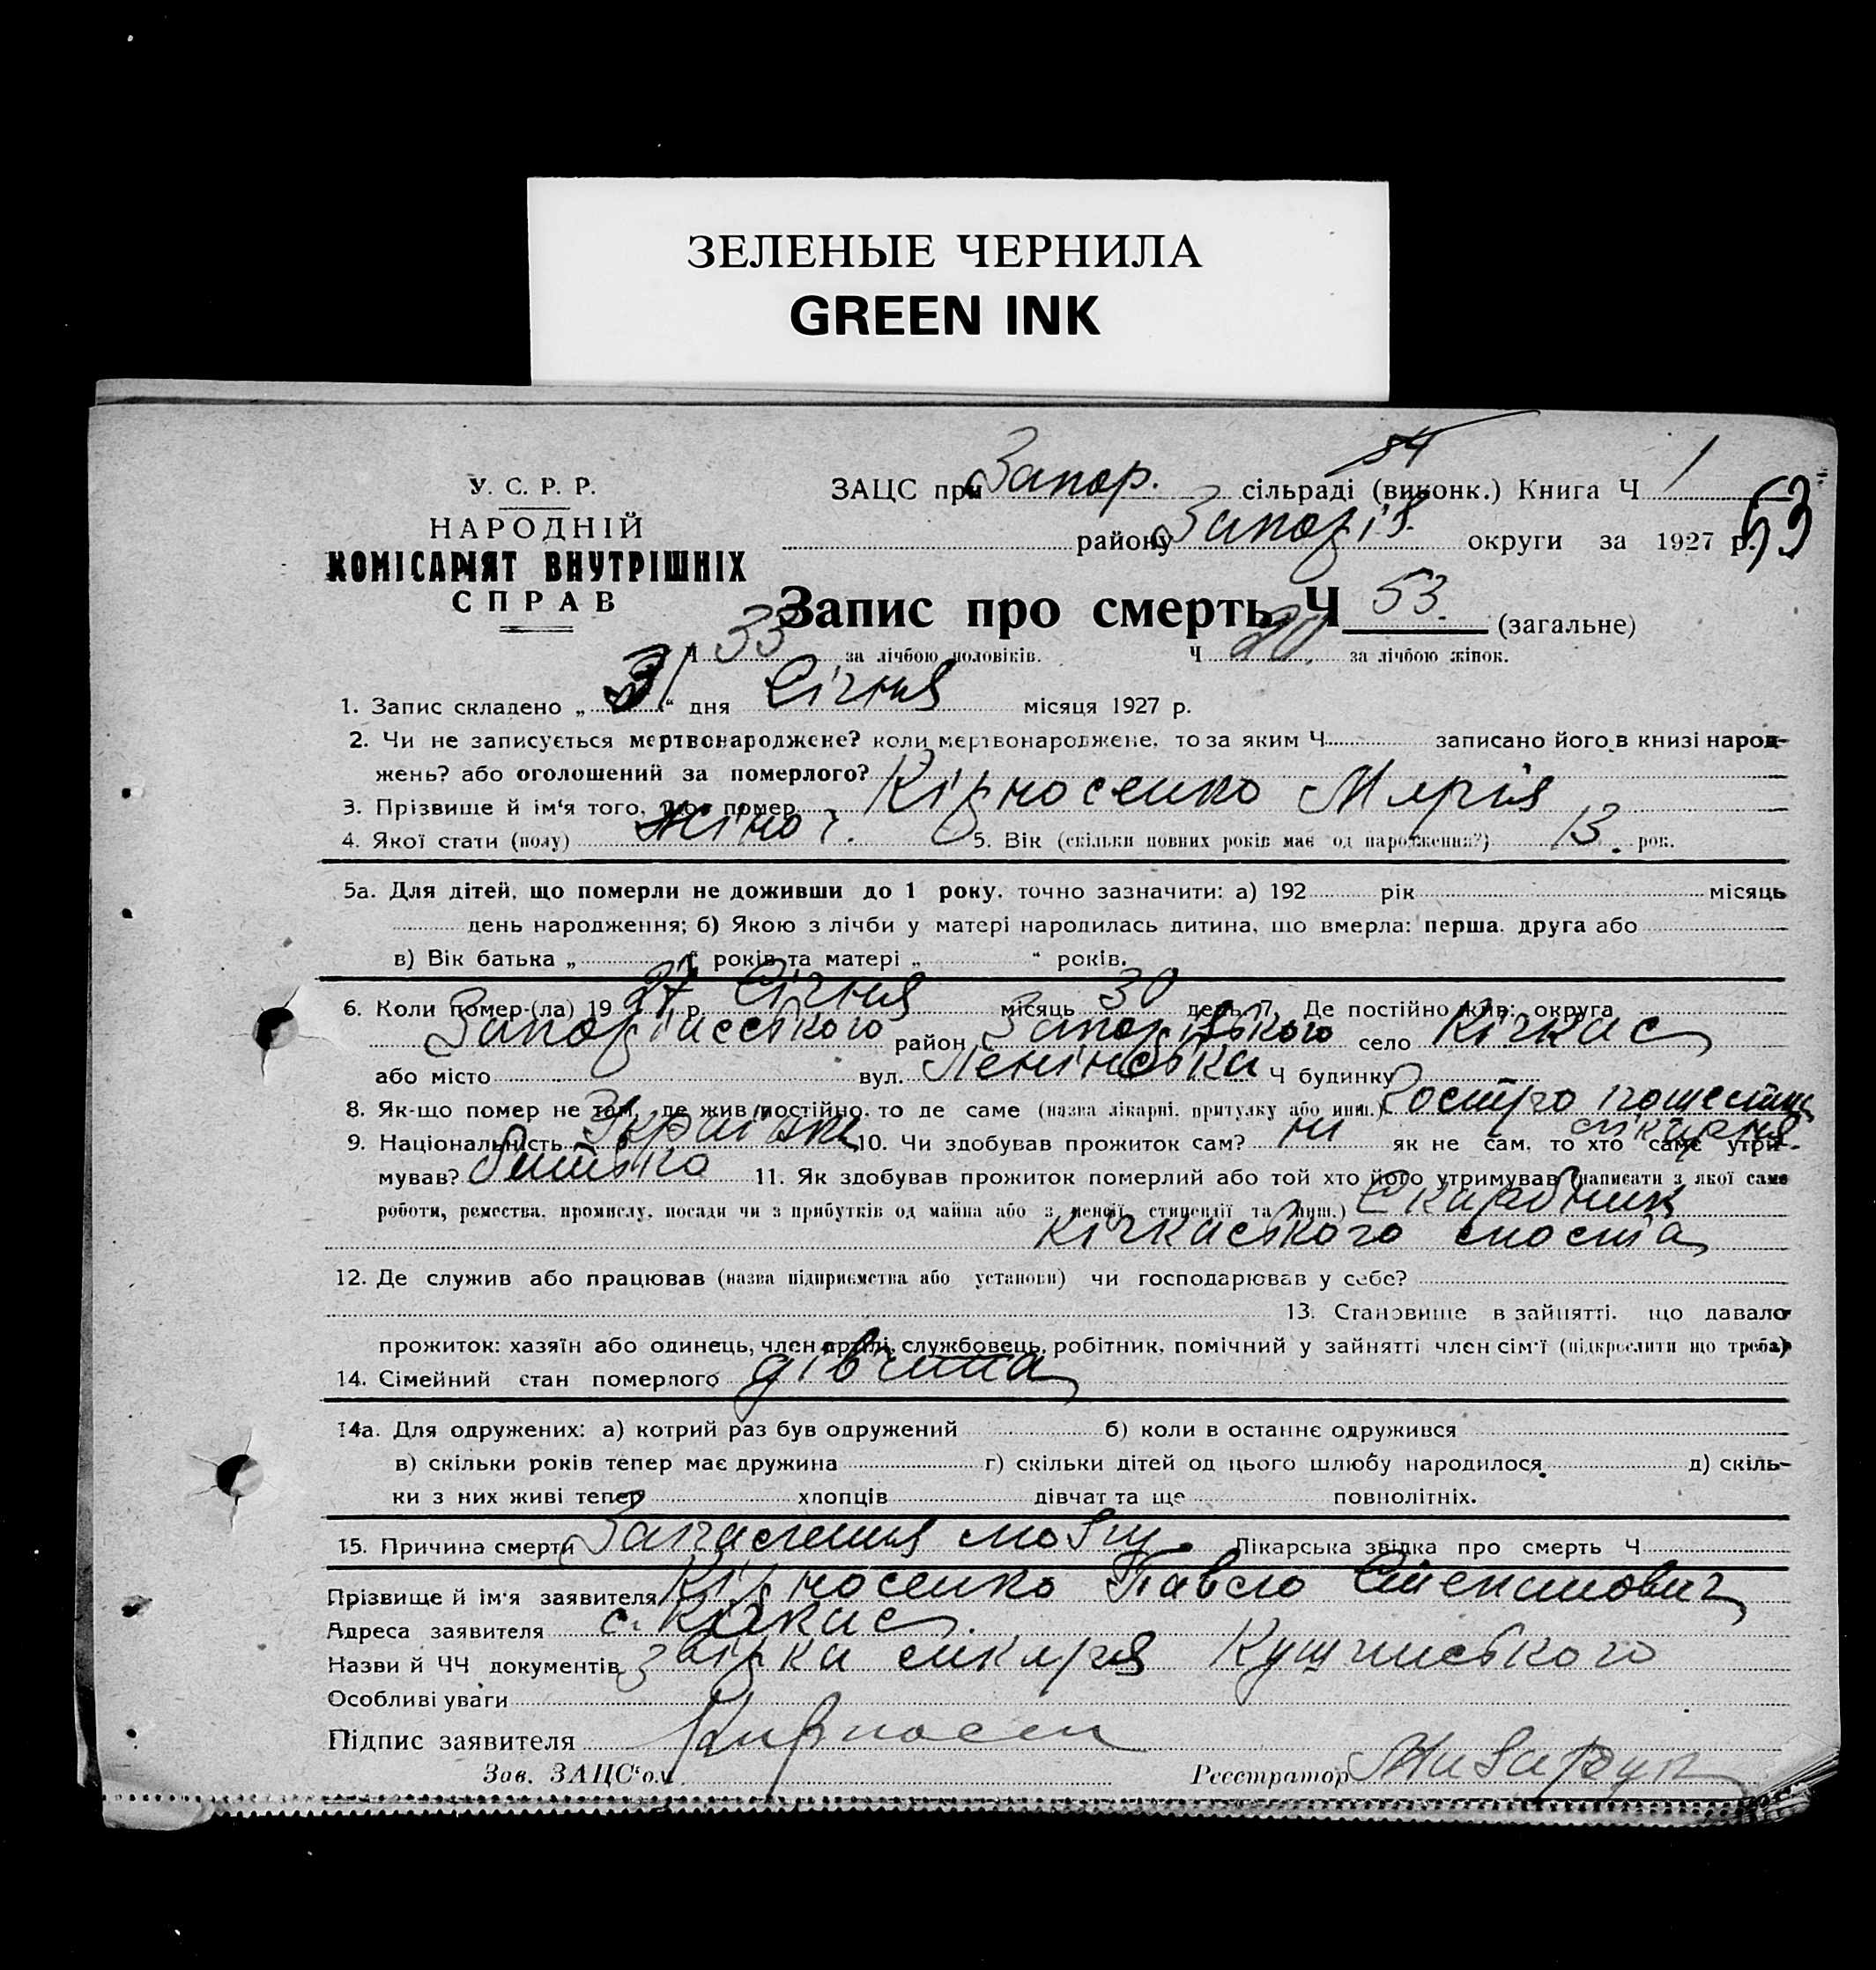 ЗЕЛЕНЫЕ ЧЕРНИЛА
GREEN INK
У. С. Р. Р.
НАРОДНІЙ
КОМІСАРІЯТ ВНУТРІШНІХ
СПРАВ
54
ЗАЦС при Запор. сільраді (виконк.) Книга Ч 1
району Запоріз. округи за 1927 р. 53
Запис про смерть Ч 53. (загальне)
Ч 33 за лічбою чоловіків. Ч 20 за лічбою жінок.
1. Запис складено „31“ дня Січня місяця 1927 р.
2. Чи не записується мертвонароджене? коли мертвонароджене, то за яким Ч записано його в книзі народ-
жень? або оголошений за померлого?
3. Прізвище й ім'я того, що помер Кірносенко Марія
4. Якої стати (полу) жіноч. 5. Вік (скільки повних років має од народження?) 13. рок.
5а. Для дітей, що померли не доживши до 1 року, точно зазначити: а) 192 рік місяць
день народження; б) Якою з лічби у матері народилась дитина, що вмерла: перша, друга або
в) Вік батька „ “ років та матері „ “ років.
6. Коли помер-(ла) 19 27 р. Січня місяць 30 день 7. Де постійно жив: округа
район село Кічкас
або місто вул. Ленінська Ч будинку
8. Як-що помер не там, де жив постійно, то де саме (назва лікарні, притулку або инш.) Гостро пошестна
лікарня
9. Національність 10. Чи здобував прожиток сам? ні як не сам, то хто саме утри-
мував? батько 11. Як здобував прожиток померлий або той хто його утримував (написати з якої саме
роботи, ремества, промислу, посади чи з прибутків од майна або з пенсії, стипендії та инш.) Скарбник
Кічкаського моста
12. Де служив або працював (назва підприємства або установи) чи господарював у себе?
13. Становище в зайнятті, що давало
прожиток: хазяїн або одинець, член артілі, службовець, робітник, помічний у зайнятті член сім'ї (підкреслити що треба)
14. Сімейний стан померлого дівчина
14а. Для одружених: а) котрий раз був одружений б) коли в останнє одружився
в) скільки років тепер має дружина г) скільки дітей од цього шлюбу народилося д) скіль-
ки з них живі тепер хлопців дівчат та ще повнолітніх.
15. Причина смерти Запалення мозгу. Лікарська звідка про смерть Ч
Прізвище й ім'я заявителя Кірносенко Павло Степанович
Адреса заявителя с. Кічкас
Назви й ЧЧ документів звідка лікаря
Особливі уваги
Підпис заявителя
Зав. ЗАЦС'ом Реєстратор